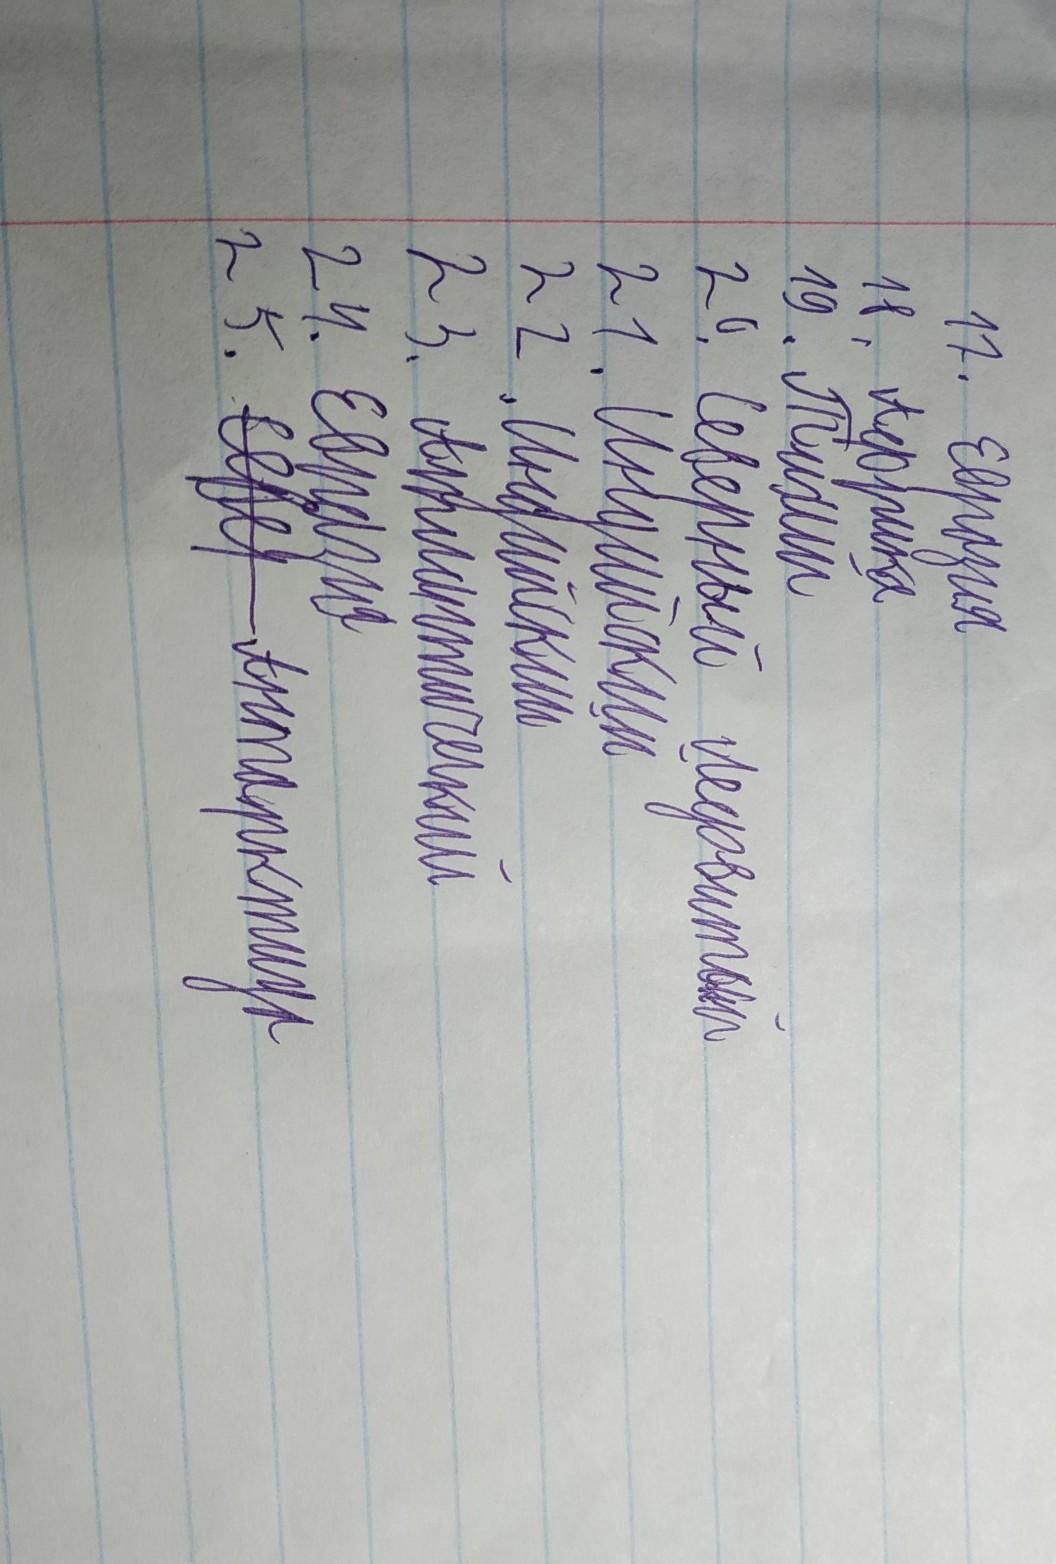 17. Евразия
18. Африка
19. Тихий
20. Северный ледовитый
21. Индийский
22. Индийский
23. Атлантический
24. Евразия
25. Антарктида